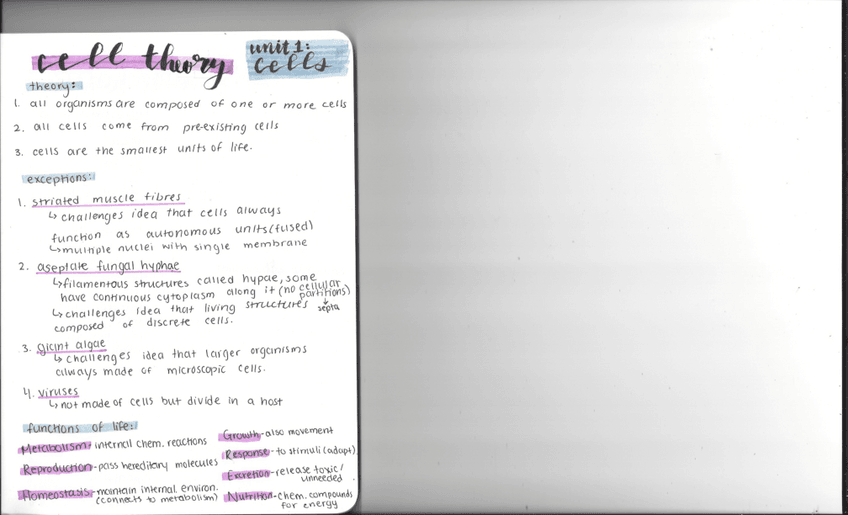 cell theory
unit 1:
cells
theory:
1. all organisms are composed of one or more cells
2. all cells come from pre-existing cells
3. cells are the smallest units of life.
exceptions:
1. striated muscle fibres
↳ challenges idea that cells always
function as autonomous units (fused)
↳ multiple nuclei with single membrane
2. aseptate fungal hyphae
↳ filamentous structures called hypae, some
have continuous cytoplasm along it (no cellular
partitions)
↓
septa
↳ challenges idea that living structures
composed of discrete cells.
3. giant algae
↳ challenges idea that larger organisms
always made of microscopic cells.
4. viruses
↳ not made of cells but divide in a host
functions of life:
Metabolism- internal chem. reactions
Reproduction- pass hereditary molecules
Homeostasis- maintain internal environ.
(connects to metabolism)
Growth- also movement
Response- to stimuli (adapt)
Excretion- release toxic/
unneeded
Nutrition- chem. compounds
for energy